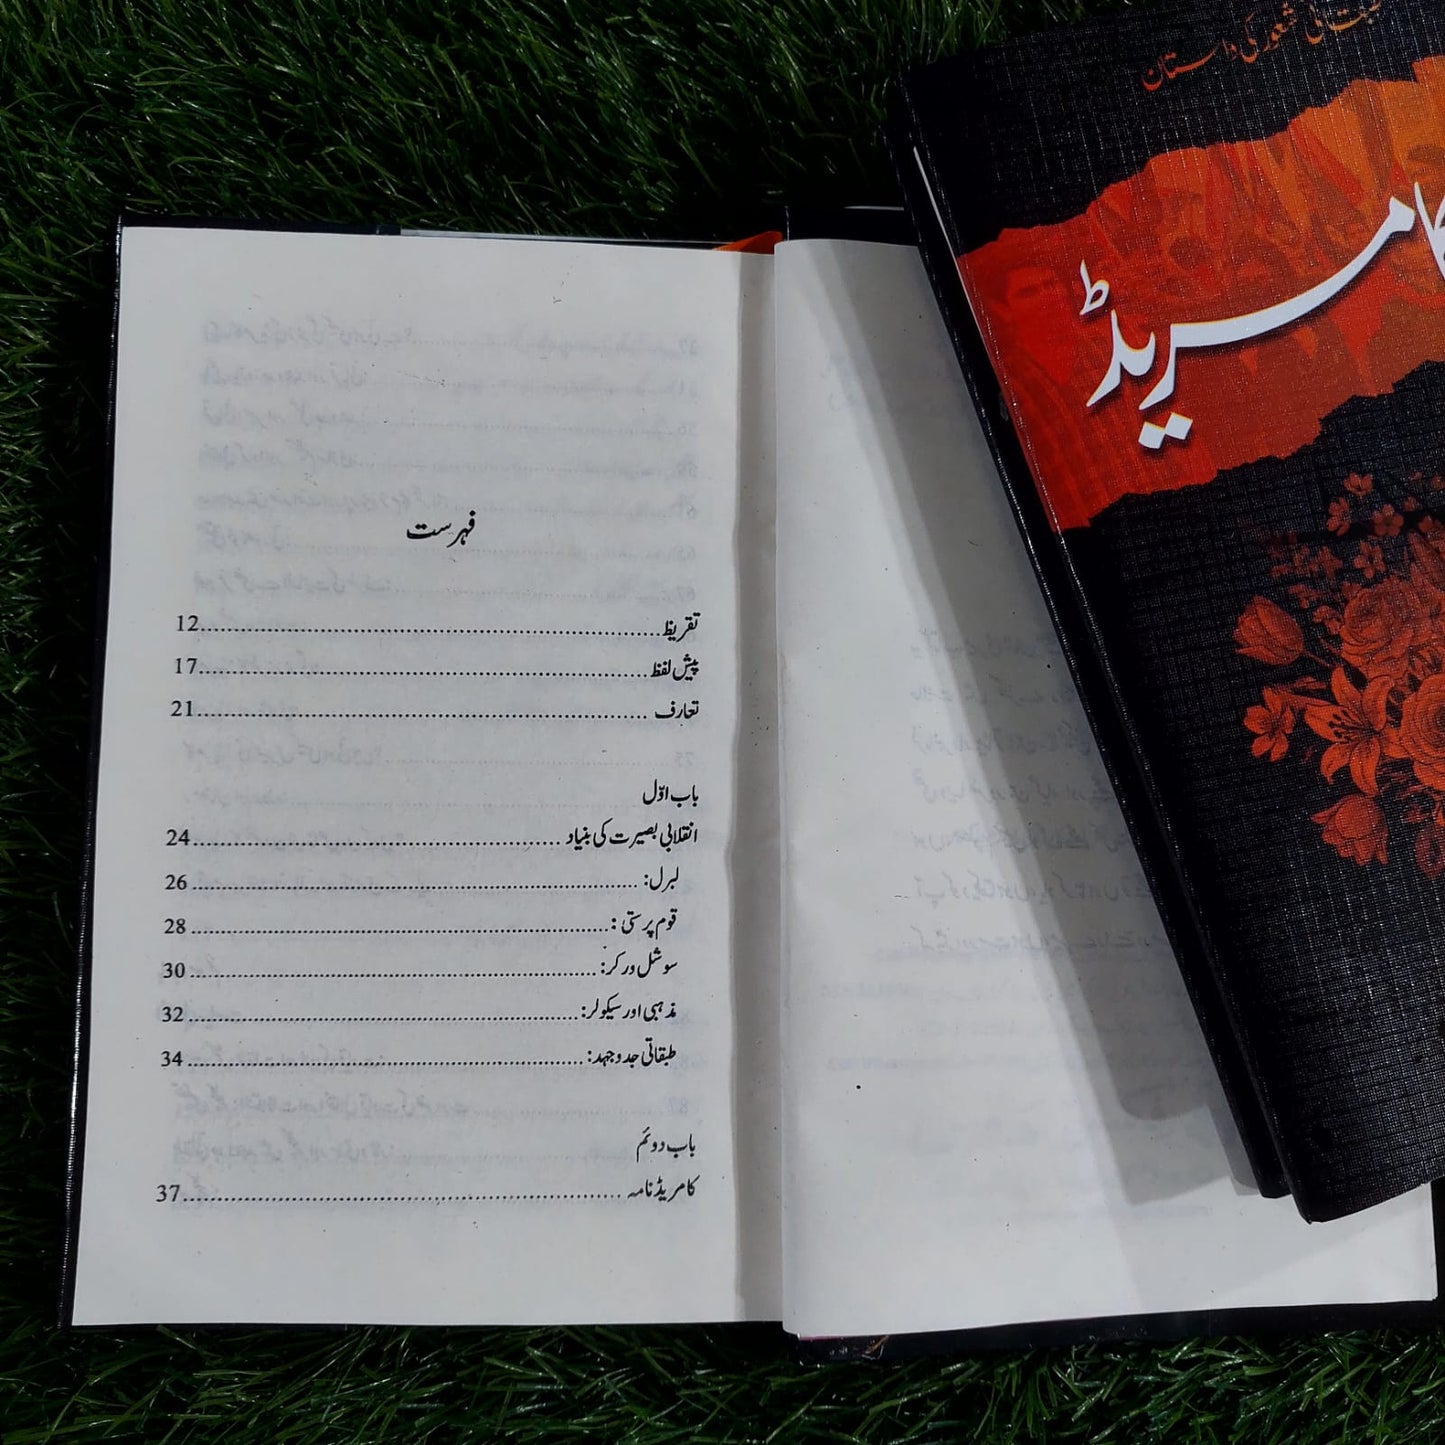 کی داستان
کامریڈ
فہرست
تقریظ ........ 12
پیش لفظ ........ 17
تعارف ........ 21
باب اوّل
انقلابی بصیرت کی بنیاد ........ 24
لبرل: ........ 26
قوم پرستی: ........ 28
سوشل ورکر: ........ 30
مذہبی اور سیکولر: ........ 32
طبقاتی جدوجہد: ........ 34
باب دوئم
کامریڈ نامہ ........ 37